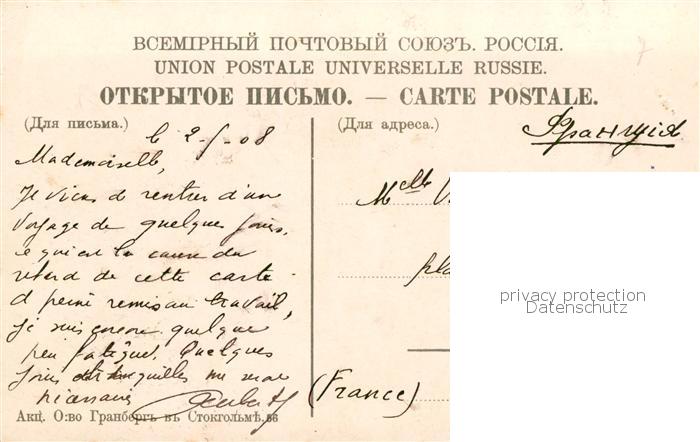 ВСЕМІРНЫЙ ПОЧТОВЫЙ СОЮЗЪ. РОССІЯ.
UNION POSTALE UNIVERSELLE RUSSIE.
ОТКРЫТОЕ ПИСЬМО. — CARTE POSTALE.
(Для письма.)
(Для адреса.)
Франція
le 2-5-08
Mademoiselle,
Je viens de rentrer d'un
voyage de quelques jours,
ce qui est la cause du
retard de cette carte
à peine remis au travail,
je suis encore quelque
peu fatigué. Quelques
jours tranquilles me
Melle
(France)
privacy protection
Datenschutz
Акц. О:во Гранбергъ въ Стокгольмѣ.